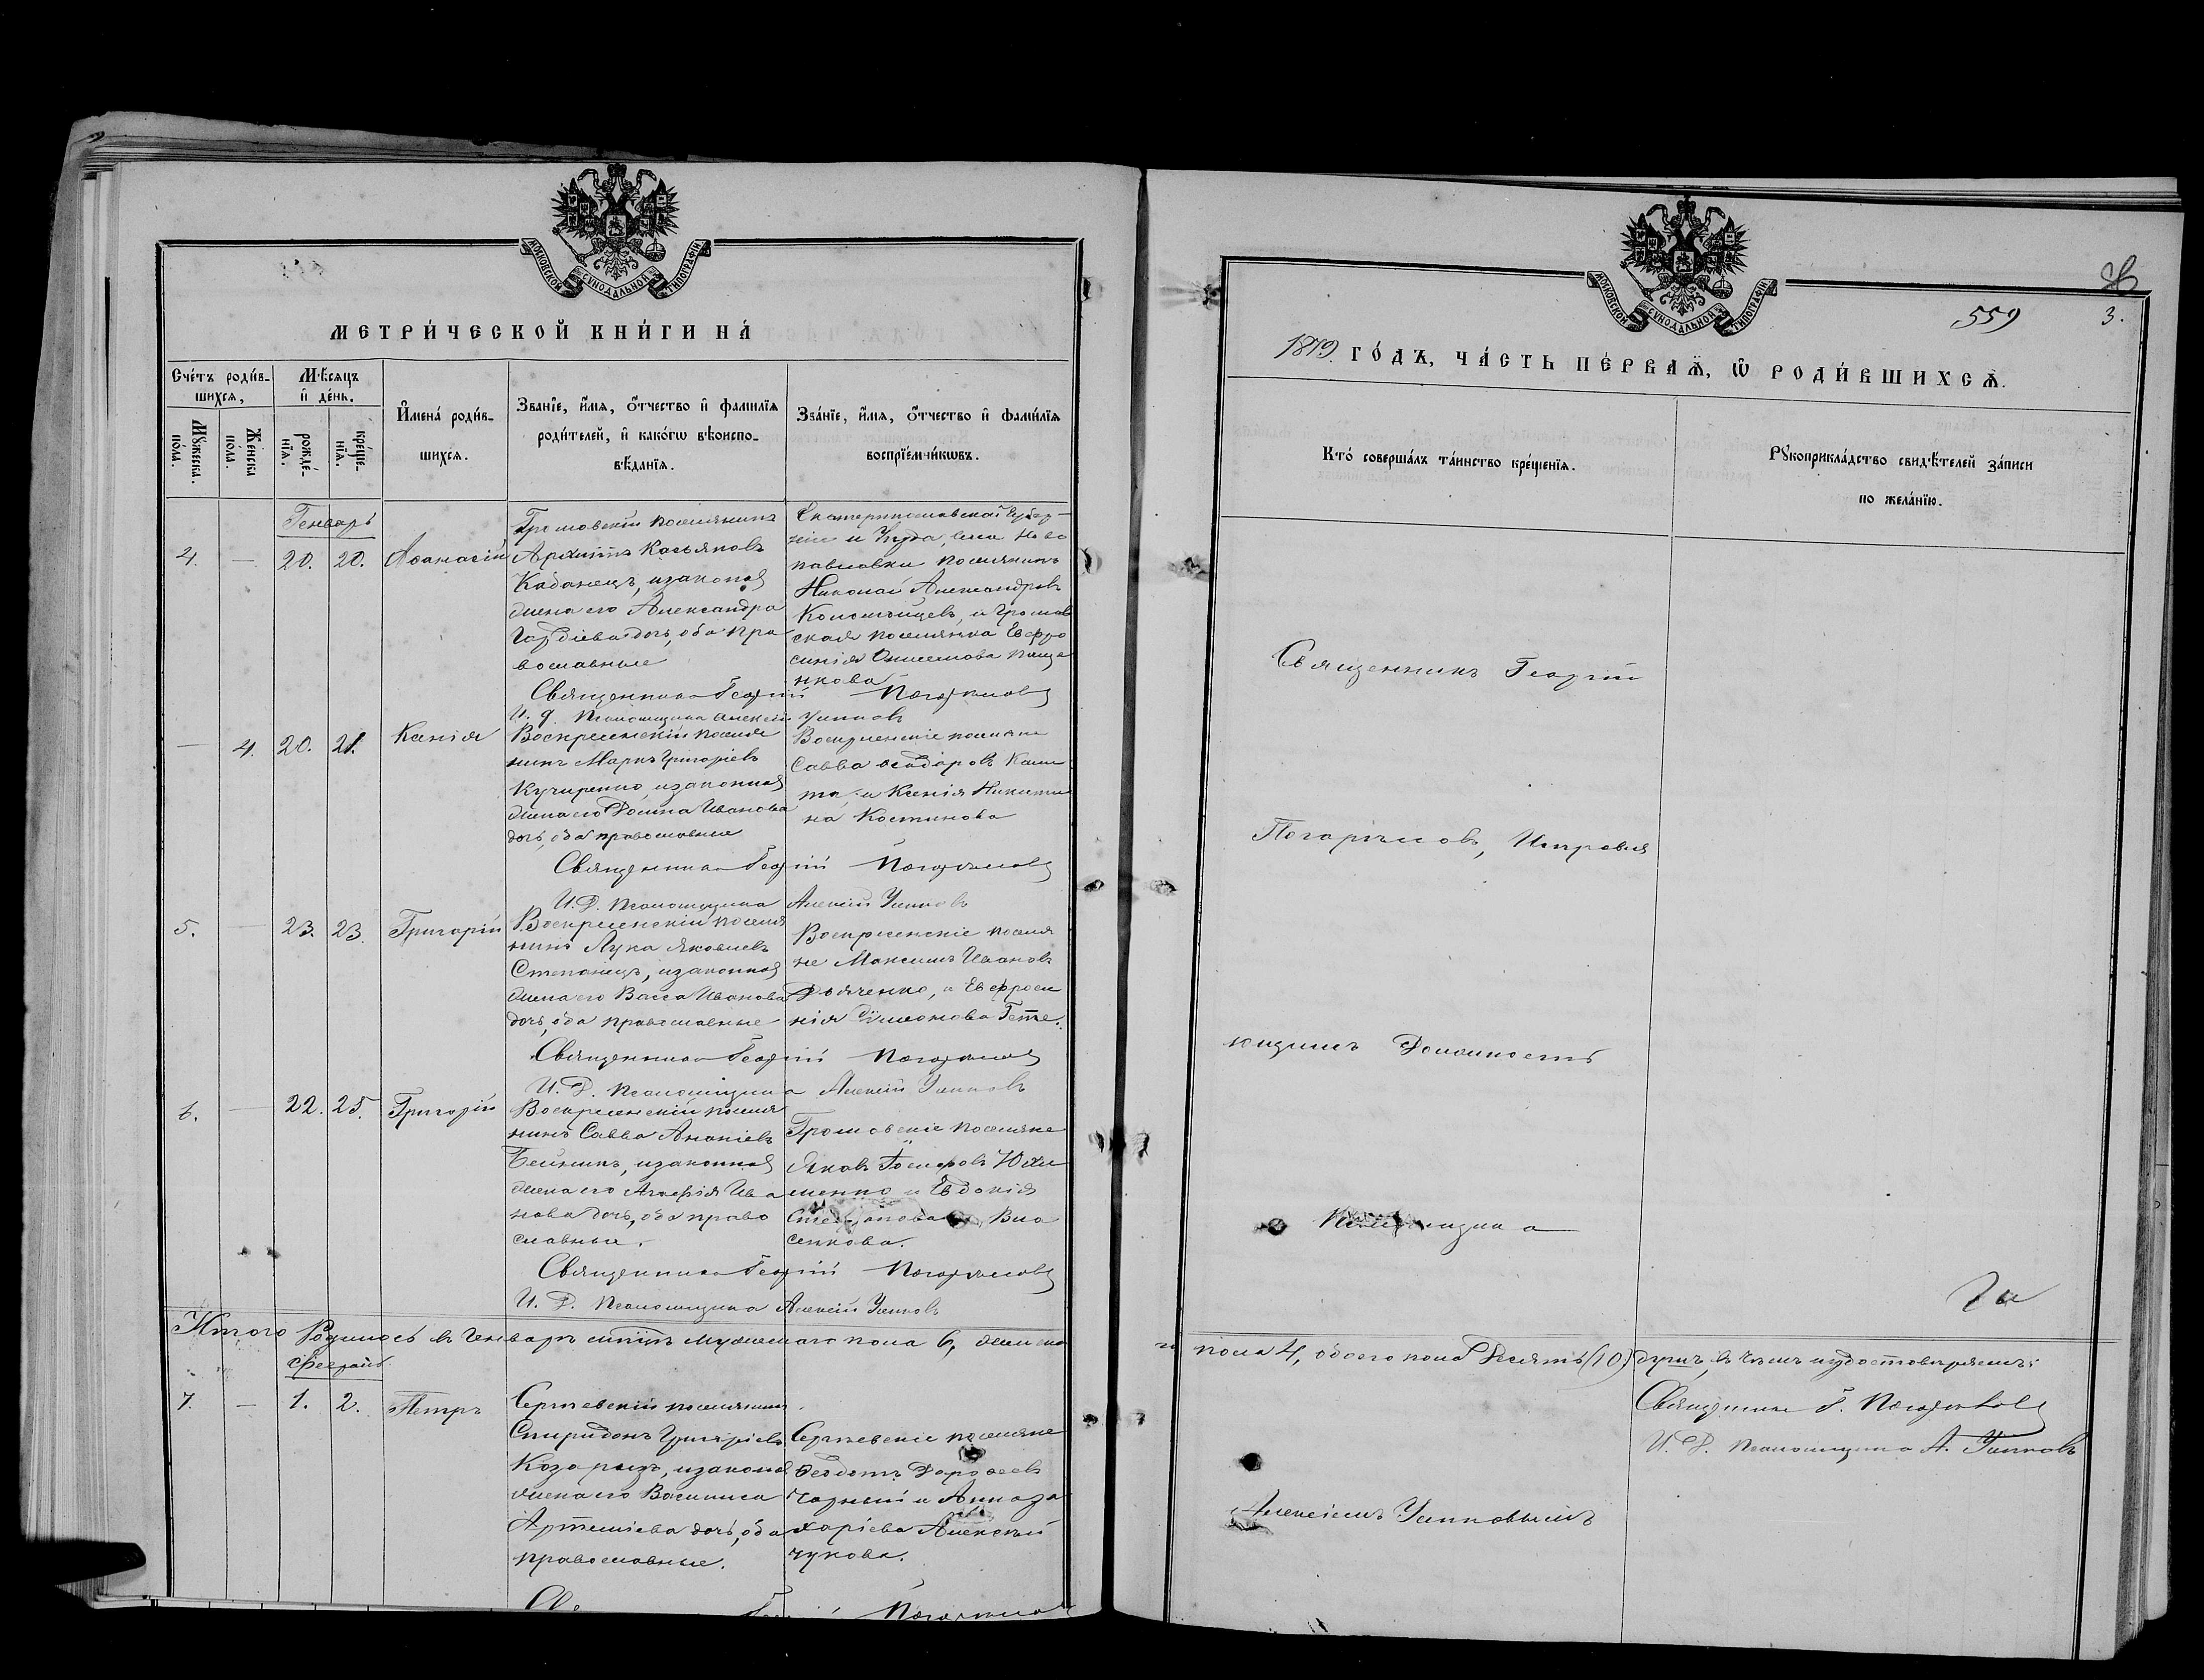 МОСКОВСКОЙ СѴНОДАЛЬНОЙ ТИПОГРАФІИ
МЕТРИ́ЧЕСКОЙ КНИ́ГИ НА́
Сче́тъ роди́в-
шихсѧ,
Мѣ́сѧцъ
и҆ де́нь.
Мꙋ́жеска
по́ла.
Же́нска
по́ла.
рожде́-
нїѧ.
креще́-
нїѧ.
И҆мена̀ роди́в-
шихсѧ.
Зва́нїе, и҆́мѧ, ѻ҆́тчество и҆ фами́лїѧ
роди́телей, и҆ како́гѡ вѣроиспо-
вѣ́данїѧ.
Зва́нїе, и҆́мѧ, ѻ҆́тчество и҆ фами́лїѧ
воспрїе́мникѡвъ.
Генварь
4. — 20. 20. Аѳанасій
Громовскій поселянинъ
Архиппъ Касьяновъ
Кабанецъ, изаконная
жена его Александра
дочь, оба пра
вославные
Екатеринославской Губер-
ніи и Уезда, села Ново
павловки поселянинъ
Николай Александровъ
Коломѣйцевъ, и Громов
ская поселянка Евфро
синія Онисимова Паще
нкова
Священникъ Георгій Погорѣловъ
И. д. Псаломщика Алексій Уликовъ
— 4. 20. 21. Ксенія
Воскресенскій поселя
нинъ Маркъ Григоріевъ
Кучеренко, изаконная
жена его Домна Иванова
дочь, оба православные
Воскресенскіе поселяне
Савва Ѳеодоровъ Кали
та, и Ксенія Никити
на Костикова
Священникъ Георгій Погорѣловъ
И. Д. Псаломщика Алексій Уликовъ
5. — 23. 23. Григорій
Воскресенскій поселя
нинъ Лука Яковлевъ
Степанецъ, изаконная
жена его Васса Иванова
дочь, оба православные
Воскресенскіе поселя
не Максимъ Ивановъ
Дьяченко, и Евфроси
нія Сѵмеонова Гетте.
Священникъ Георгій Погорѣловъ
И. Д. Псаломщика Алексій Уликовъ
6. — 22. 25. Григорій
Воскресенскій поселя
нинъ Савва Ананіевъ
изаконная
жена его Агафія Ива
нова дочь, оба право
славные.
Громовскіе поселяне
Яковъ
менко и Евдокія
Стефанова Вла
сенкова.
Священникъ Георгій Погорѣловъ
И. Д. Псаломщика Алексій Уликовъ
Итого Родилось въ Генварѣ мѣсяцѣ мужескаго пола 6, женска
Февраль
7. — 1. 2. Петръ
Сергѣевскій поселянинъ
Спиридонъ Григоріевъ
Козарезъ, изаконная
жена его Василиса
Артеміева дочь, оба
православные.
Сергѣевскіе поселяне
Ѳеодотъ Дороѳеевъ
Чорный и Анна За
харіева Алексѣй
чукова.
Погорѣловъ
МОСКОВСКОЙ СѴНОДАЛЬНОЙ ТИПОГРАФІИ
559
3.
1879. ГО́ДЪ, ЧА́СТЬ ПЕ́РВАѦ, Ѡ҆ РОДИ́ВШИХСѦ.
Кто̀ соверша́лъ та́инство креще́нїѧ.
Рꙋкоприкла́дство свидѣ́телей за́писи
по жела́нїю.
Священникъ Георгій
Погорѣловъ, Исправля
ющимъ Должность
Псаломщика
го пола 4, обоего пола Десять (10) душъ, въ чемъ и удостовѣряемъ:
Священникъ Г. Погорѣловъ
И. Д. Псаломщика А. Уликовъ
Алексіемъ Уликовымъ